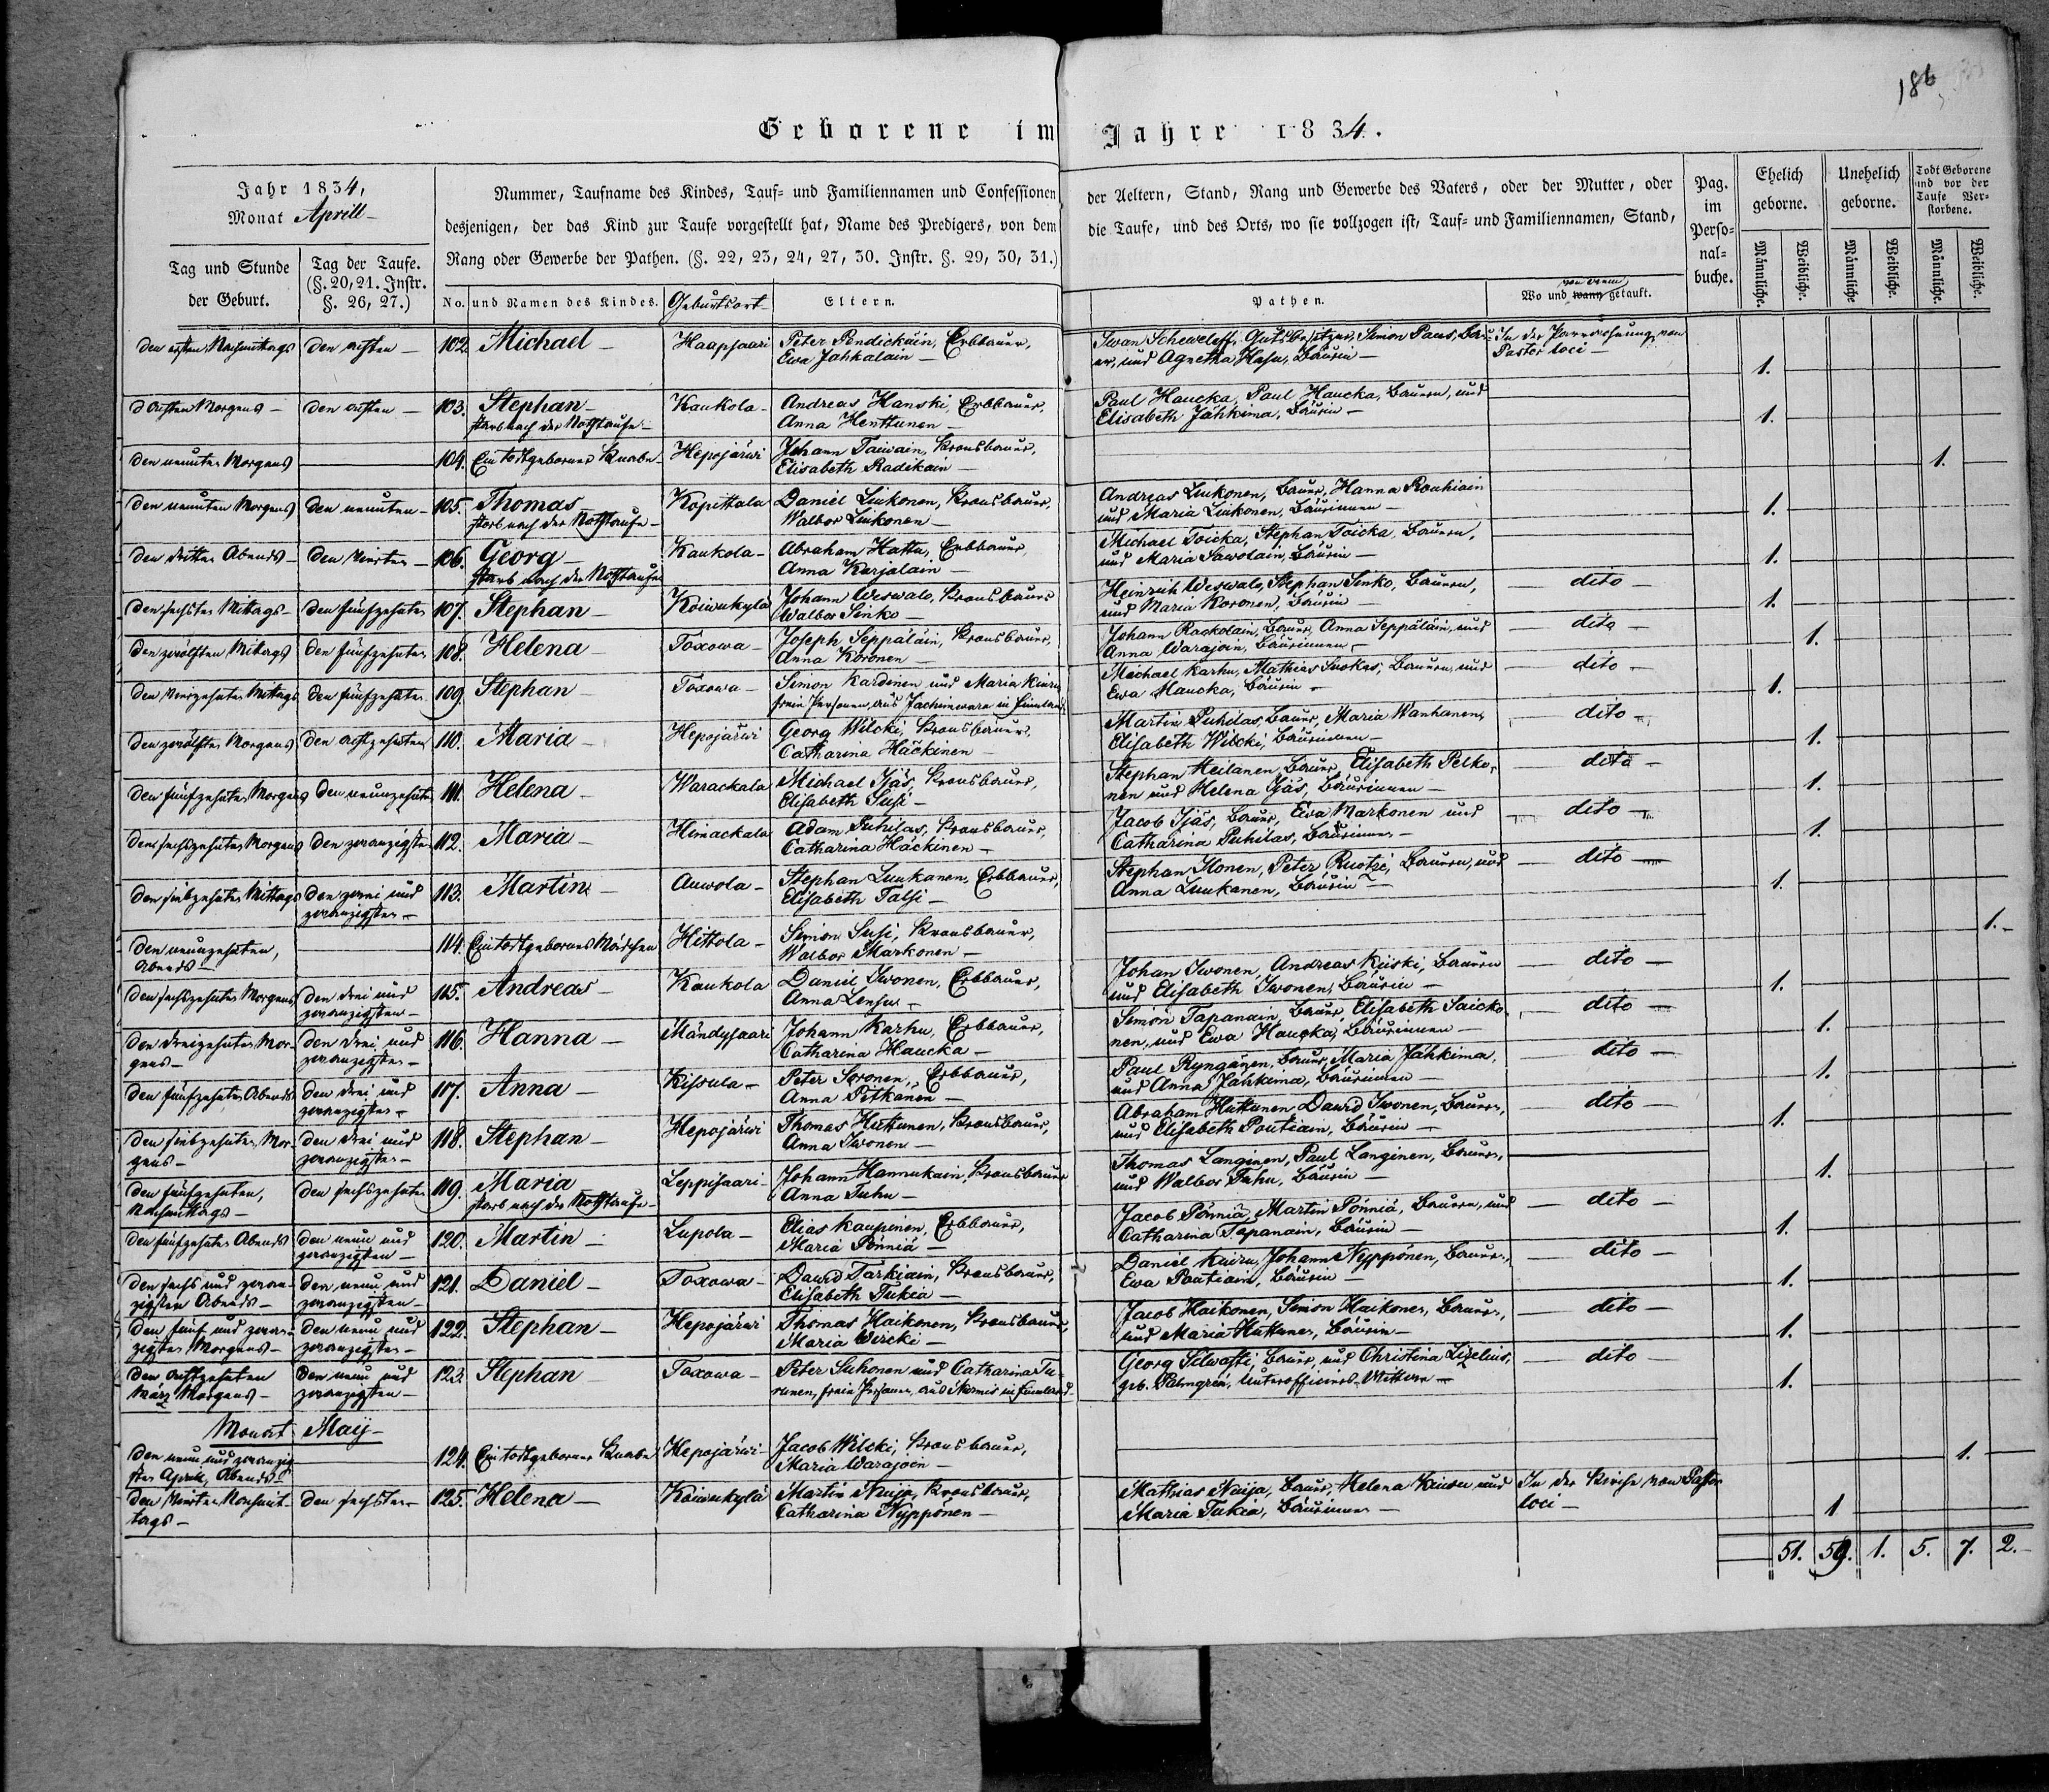 186
Geborene im Jahre 1834.
Jahr 1834,
Monat Aprill
Tag und Stunde der Geburt.
Tag der Taufe. (§. 20, 21. Instr. §. 26, 27.)
Nummer, Taufname des Kindes, Tauf- und Familiennamen und Confessionen der Aeltern, Stand, Rang und Gewerbe des Vaters, oder der Mutter, oder
desjenigen, der das Kind zur Taufe vorgestellt hat, Name des Predigers, von dem die Taufe, und des Orts, wo sie vollzogen ist, Tauf- und Familiennamen, Stand,
Rang oder Gewerbe der Pathen. (§. 22, 23, 24, 27, 30. Instr. §. 29, 30, 31.)
No. und Namen des Kindes. Geburtsort Eltern. Pathen. Wo und wann von wem getauft.
Pag. im Perso-nal-buche.
Ehelich geborne. Unehelich geborne. Todt Geborene und vor der Taufe Ver-storbene.
Männliche. Weibliche. Männliche Weibliche. Männliche. Weibliche.
den ersten Nachmittags den achten 102. Michael Haapsaari Peter Pendickäin, Erbbauer, Iwan Scheweleff, Gutsbesitzer, Simon Paus, Bau- In der Pfarrwohnung von
Ewa Jahkalain er, und Agnetha Hafu, Bäurin Pastor loci 1.
d achten Morgens den achten 103. Stephan Kaukola Andreas Hanski, Erbbauer, Paul Haucka, Paul Haucka, Bauern, und
starb nach der Nothtaufe Anna Henttunen Elisabeth Jähkima, Bäurin 1.
den neunten Morgens 104. Ein todtgeborner Knabe Hepojärwi Johann Taiwain, Kronsbauer,
Elisabeth Radikain 1.
den neunten Morgens den neunten 105. Thomas Kopittala Daniel Liukonen, Kronsbauer, Andreas Liukonen, Bauer, Hanna Rouhiain
starb nach der Nothtaufe Walbor Liukonen und Maria Liukonen, Bäurinnen 1.
den dritten Abends den vierten 106. Georg Kaukola Abraham Hattu, Erbbauer Michael Toicka, Stephan Toicka, Bauern,
starb nach der Nothtaufe Anna Karjalain und Maria Sawolain, Bäurin 1.
den sechsten Mittags den fünfzehnten 107. Stephan Koiwukylä Johann Weswalo, Kronsbauer Heinrich Weswalo, Stephan Sinko, Bauern, dito
Walbor Sinko und Maria Koronen, Bäurin 1.
den zwölften Mittags den fünfzehnten 108. Helena Toxowa Joseph Seppäläin, Kronsbauer, Johann Rackolain, Bauer, Anna Seppäläin, und dito
Anna Koronen Anna Warajoin, Bäurinnen 1.
den vierzehnten Mittags den fünfzehnten 109. Stephan Toxowa Simon Kardinen und Maria Kiuru Michael Karhu, Mathias Suokas, Bauern, und dito
freie Personen, aus in Finnland Ewa Haucka, Bäurin 1.
den zwölften Morgens den achtzehnten 110. Maria Hepojärwi Georg Wilcki, Kronsbauer, Martin Puhilas, Bauer, Maria Wanhanen, dito
Catharina Häckinen Elisabeth Wilcki, Bäurinnen 1.
den fünfzehnten Morgens den neunzehnten 111. Helena Warackala Michael Ijäs, Kronsbauer, Stephan Meilanen, Bauer, Elisabeth Pelko- dito
Elisabeth Susi nen und Helena Ijäs, Bäurinnen 1.
den sechszehnten Morgens den zwanzigsten 112. Maria Himackala Adam Puhilas, Kronsbauer, Jacob Ijäs, Bauer, Ewa Markonen und dito
Catharina Häckinen Catharina Puhilas, Bäurinnen 1.
den siebzehnten Mittags den zwei und 113. Martin Auwola Stephan Luukanen, Erbbauer, Stephan Ilonen, Peter Ruotzi, Bauern, und dito
zwanzigsten Elisabeth Talsi Anna Luukanen, Bäurin 1.
den neunzehnten, 114. Ein todtgebornes Mädchen Hittola Simon Susi, Kronsbauer,
Abends Walbor Markonen 1.
den sechszehnten Morgens den drei und 115. Andreas Kaukola Daniel Iwonen, Erbbauer, Johan Iwonen, Andreas Kiiski, Bauern dito
zwanzigsten Anna Lensu und Elisabeth Iwonen, Bäurin 1.
den dreizehnten Mor- den drei und 116. Hanna Mändysaari Johann Karhu, Erbbauer, Simon Tapanain, Bauer, Elisabeth Saicko- dito
gens zwanzigsten Catharina Haucka nen, und Ewa Haucka, Bäurinnen 1.
den fünfzehnten Abends den drei und 117. Anna Kissula Peter Soronen, Erbbauer, Paul Ryngänen, Bauer, Maria Jähkima, dito
zwanzigsten Anna Pitkänen und Anna Jähkima, Bäurinnen 1.
den siebzehnten Mor- den drei und 118. Stephan Hepojärwi Thomas Huttunen, Kronsbauer, Abraham Huttunen, Dawid Iwonen, Bauern, dito
gens zwanzigsten Anna Iwonen und Elisabeth Poutiain, Bäurin 1.
den fünfzehnten, den sechszehnten 119. Maria Leppisaari Johann Hannukain, Kronsbauer Thomas Langinen, Paul Langinen, Bauern,
Nachmittags starb nach der Nothtaufe Anna Tuhu und Walbor Tuhu, Bäurin 1.
den fünfzehnten Abends den neun und 120. Martin Lupola Elias Kaupinen, Erbbauer, Jacob Pönniä, Martin Pönniä, Bauern, und dito
zwanzigsten Maria Pönniä Catharina Tapanain, Bäurin 1.
den sechs und zwan- den neun und 121. Daniel Toxowa Dawid Tarkiain, Kronsbauer, Daniel Kiuru, Johann Nyppönen, Bauern, dito
zigsten Abends zwanzigsten Elisabeth Tukia Ewa Poutiain, Bäurin 1.
den fünf und zwan- den neun und 122. Stephan Hepojärwi Thomas Haikonen, Kronsbauer, Jacob Haikonen, Simon Haikonen, Bauern, dito
zigsten Morgens zwanzigsten Maria Wircki und Maria Huttunen, Bäurin 1.
den achtzehnten den neun und 123. Stephan Toxowa Peter Suhonen und Catharina Tu- Georg Silwasti, Bauer, und Christina Lizelius, dito
März Morgens zwanzigsten runen, freie Personen, aus in Finnland geb. Palmgrén, Unterofficiers-Wittwe 1.
Monat May
den neun und zwanzig- 124. Ein todtgeborner Knabe Hepojärwi Jacob Wilcki, Kronsbauer,
sten April, Abends Maria Warajoin 1.
den vierten Nachmit- den sechsten 125. Helena Koiwukylä Martin Nuija, Kronsbauer, Mathias Nuija, Bauer, Helena Kiuru und In der Kirche von Pastor
tags Catharina Nyppönen Maria Tukia, Bäurinnen loci 1
51. 59. 1. 5. 7. 2.